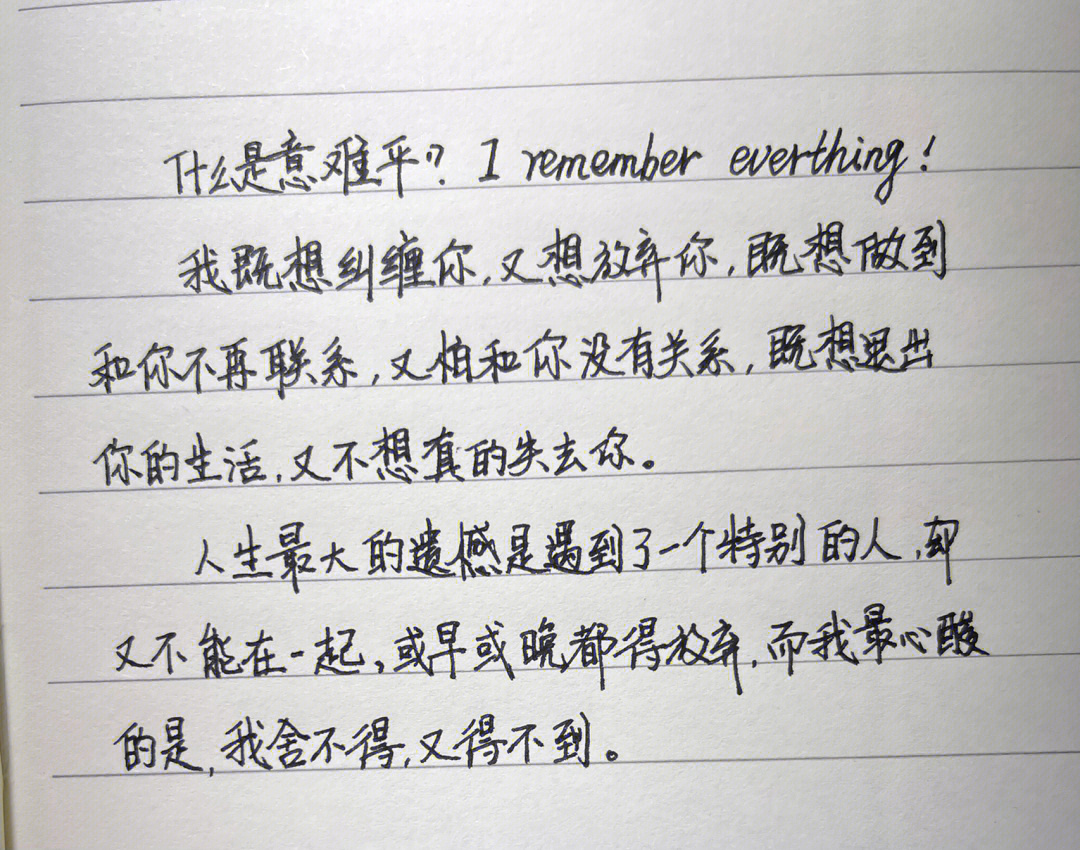 什么是意难平? I remember everthing!
我既想纠缠你,又想放弃你,既想做到
和你不再联系,又怕和你没有关系,既想退出
你的生活,又不想真的失去你。
人生最大的遗憾是遇到了一个特别的人,却
又不能在一起,或早或晚都得放弃,而我最心酸
的是,我舍不得,又得不到。